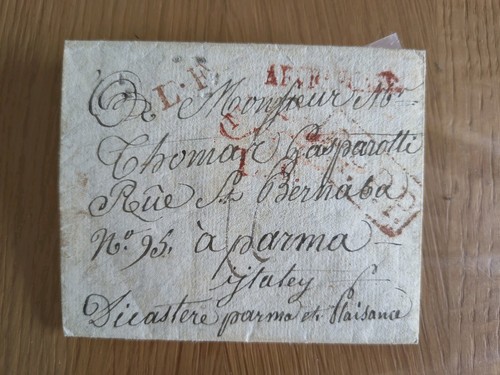 L.F.
A Monsieur Mr
Thomas Gasparotti
Rüe St Bernaba
No. 95. à parma
ijtaley
Dicastere parma et Plaisance